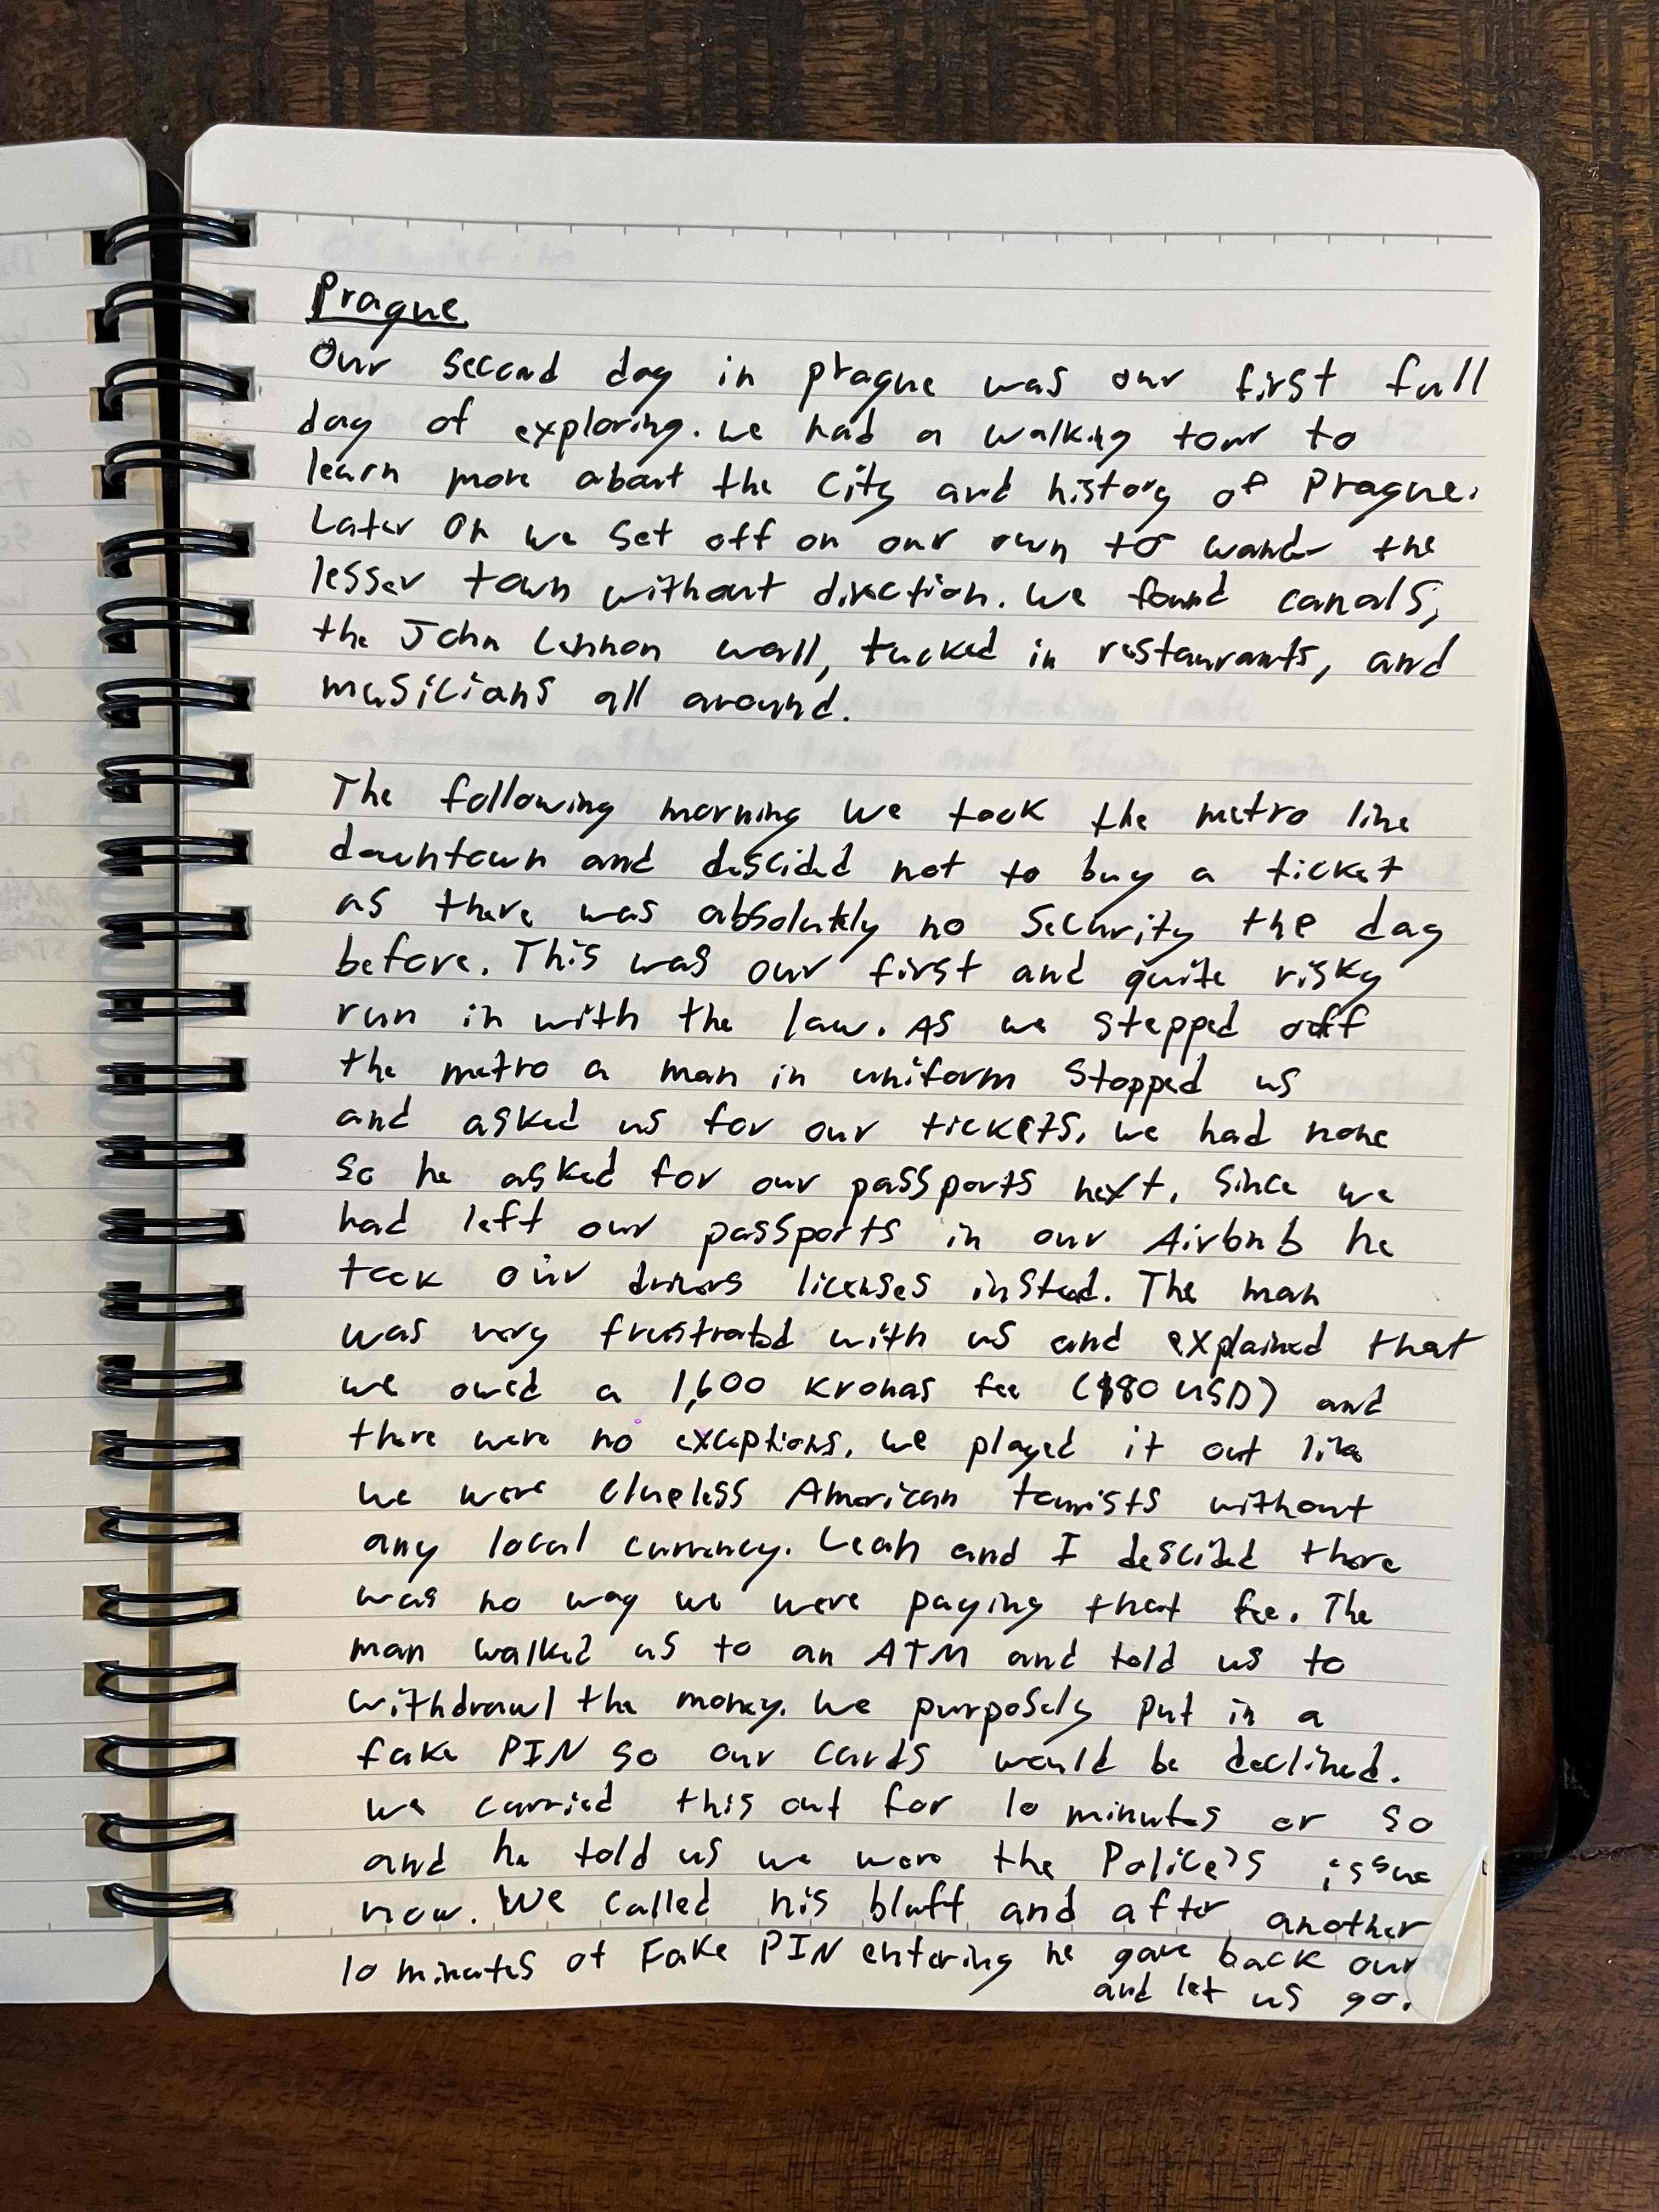 Prague
Our second day in prague was our first full
day of exploring. We had a walking tour to
learn more about the city and history of Prague.
Later on we set off on our own to wander the
lesser town without direction. We found canals,
the John Lennon wall, tucked in restaurants, and
musicians all around.
The following morning we took the metro line
downtown and descided not to buy a ticket
as there was absolutely no security the day
before. This was our first and quite risky
run in with the law. As we stepped off
the metro a man in uniform stopped us
and asked us for our tickets. We had none
so he asked for our passports next. Since we
had left our passports in our Airbnb he
took our drivers licenses instead. The man
was very frustrated with us and explained that
we owed a 1,600 kronas fee ($80 USD) and
there were no exceptions. We played it out like
we were clueless American tourists without
any local currency. Leah and I descided there
was no way we were paying that fee. The
man walked us to an ATM and told us to
withdrawl the money. We purposely put in a
fake PIN so our cards would be declined.
We carried this out for 10 minutes or so
and he told us we were the Police's issue
now. We called his bluff and after another
10 minutes of Fake PIN entering he gave back our
and let us go.